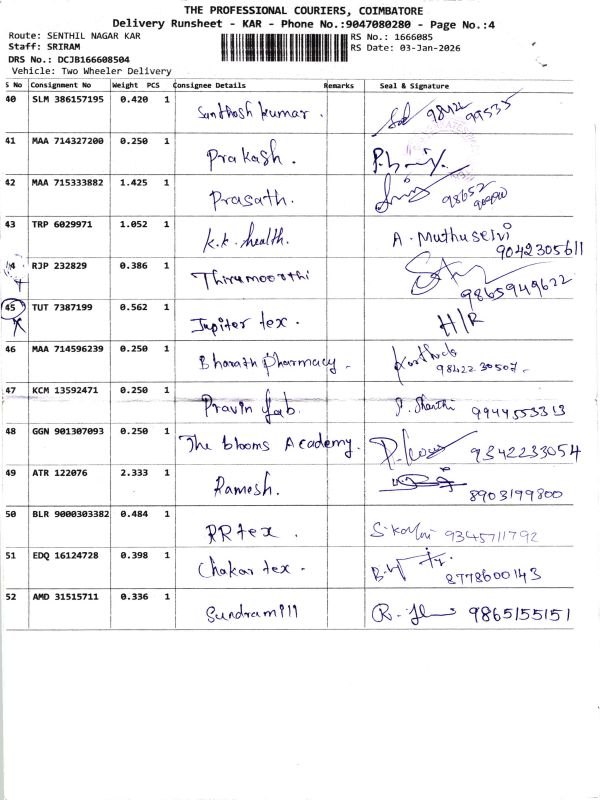 THE PROFESSIONAL COURIERS, COIMBATORE
Delivery Runsheet - KAR - Phone No.:9047080280 - Page No.:4
Route: SENTHIL NAGAR KAR RS No.: 1666085
Staff: SRIRAM RS Date: 03-Jan-2026
DRS No.: DCJB166608504
Vehicle: Two Wheeler Delivery
S No Consignment No Weight PCS Consignee Details Remarks Seal & Signature
40 SLM 386157195 0.420 1 Santhosh kumar . 98422 99535
41 MAA 714327200 0.250 1 Prakash .
42 MAA 715333882 1.425 1 Prasath. 98652
43 TRP 6029971 1.052 1 K.K. health. A. Muthuselvi 9042305611
RJP 232829 0.386 1 Thirumoorthi 9865949622
45 TUT 7387199 0.562 1 Jupiter tex . H/R
46 MAA 714596239 0.250 1 Bharath Pharmacy . 98422 30507 -
47 KCM 13592471 0.250 1 Pravin Lab. Shanthi 9944553313
48 GGN 901307093 0.250 1 The blooms Academy. 9342233054
49 ATR 122076 2.333 1 Ramesh. 8903199800
50 BLR 9000303382 0.484 1 RR tex . 9345711792
51 EDQ 16124728 0.398 1 Chakar tex . 8778600143
52 AMD 31515711 0.336 1 Sundram 9865155151